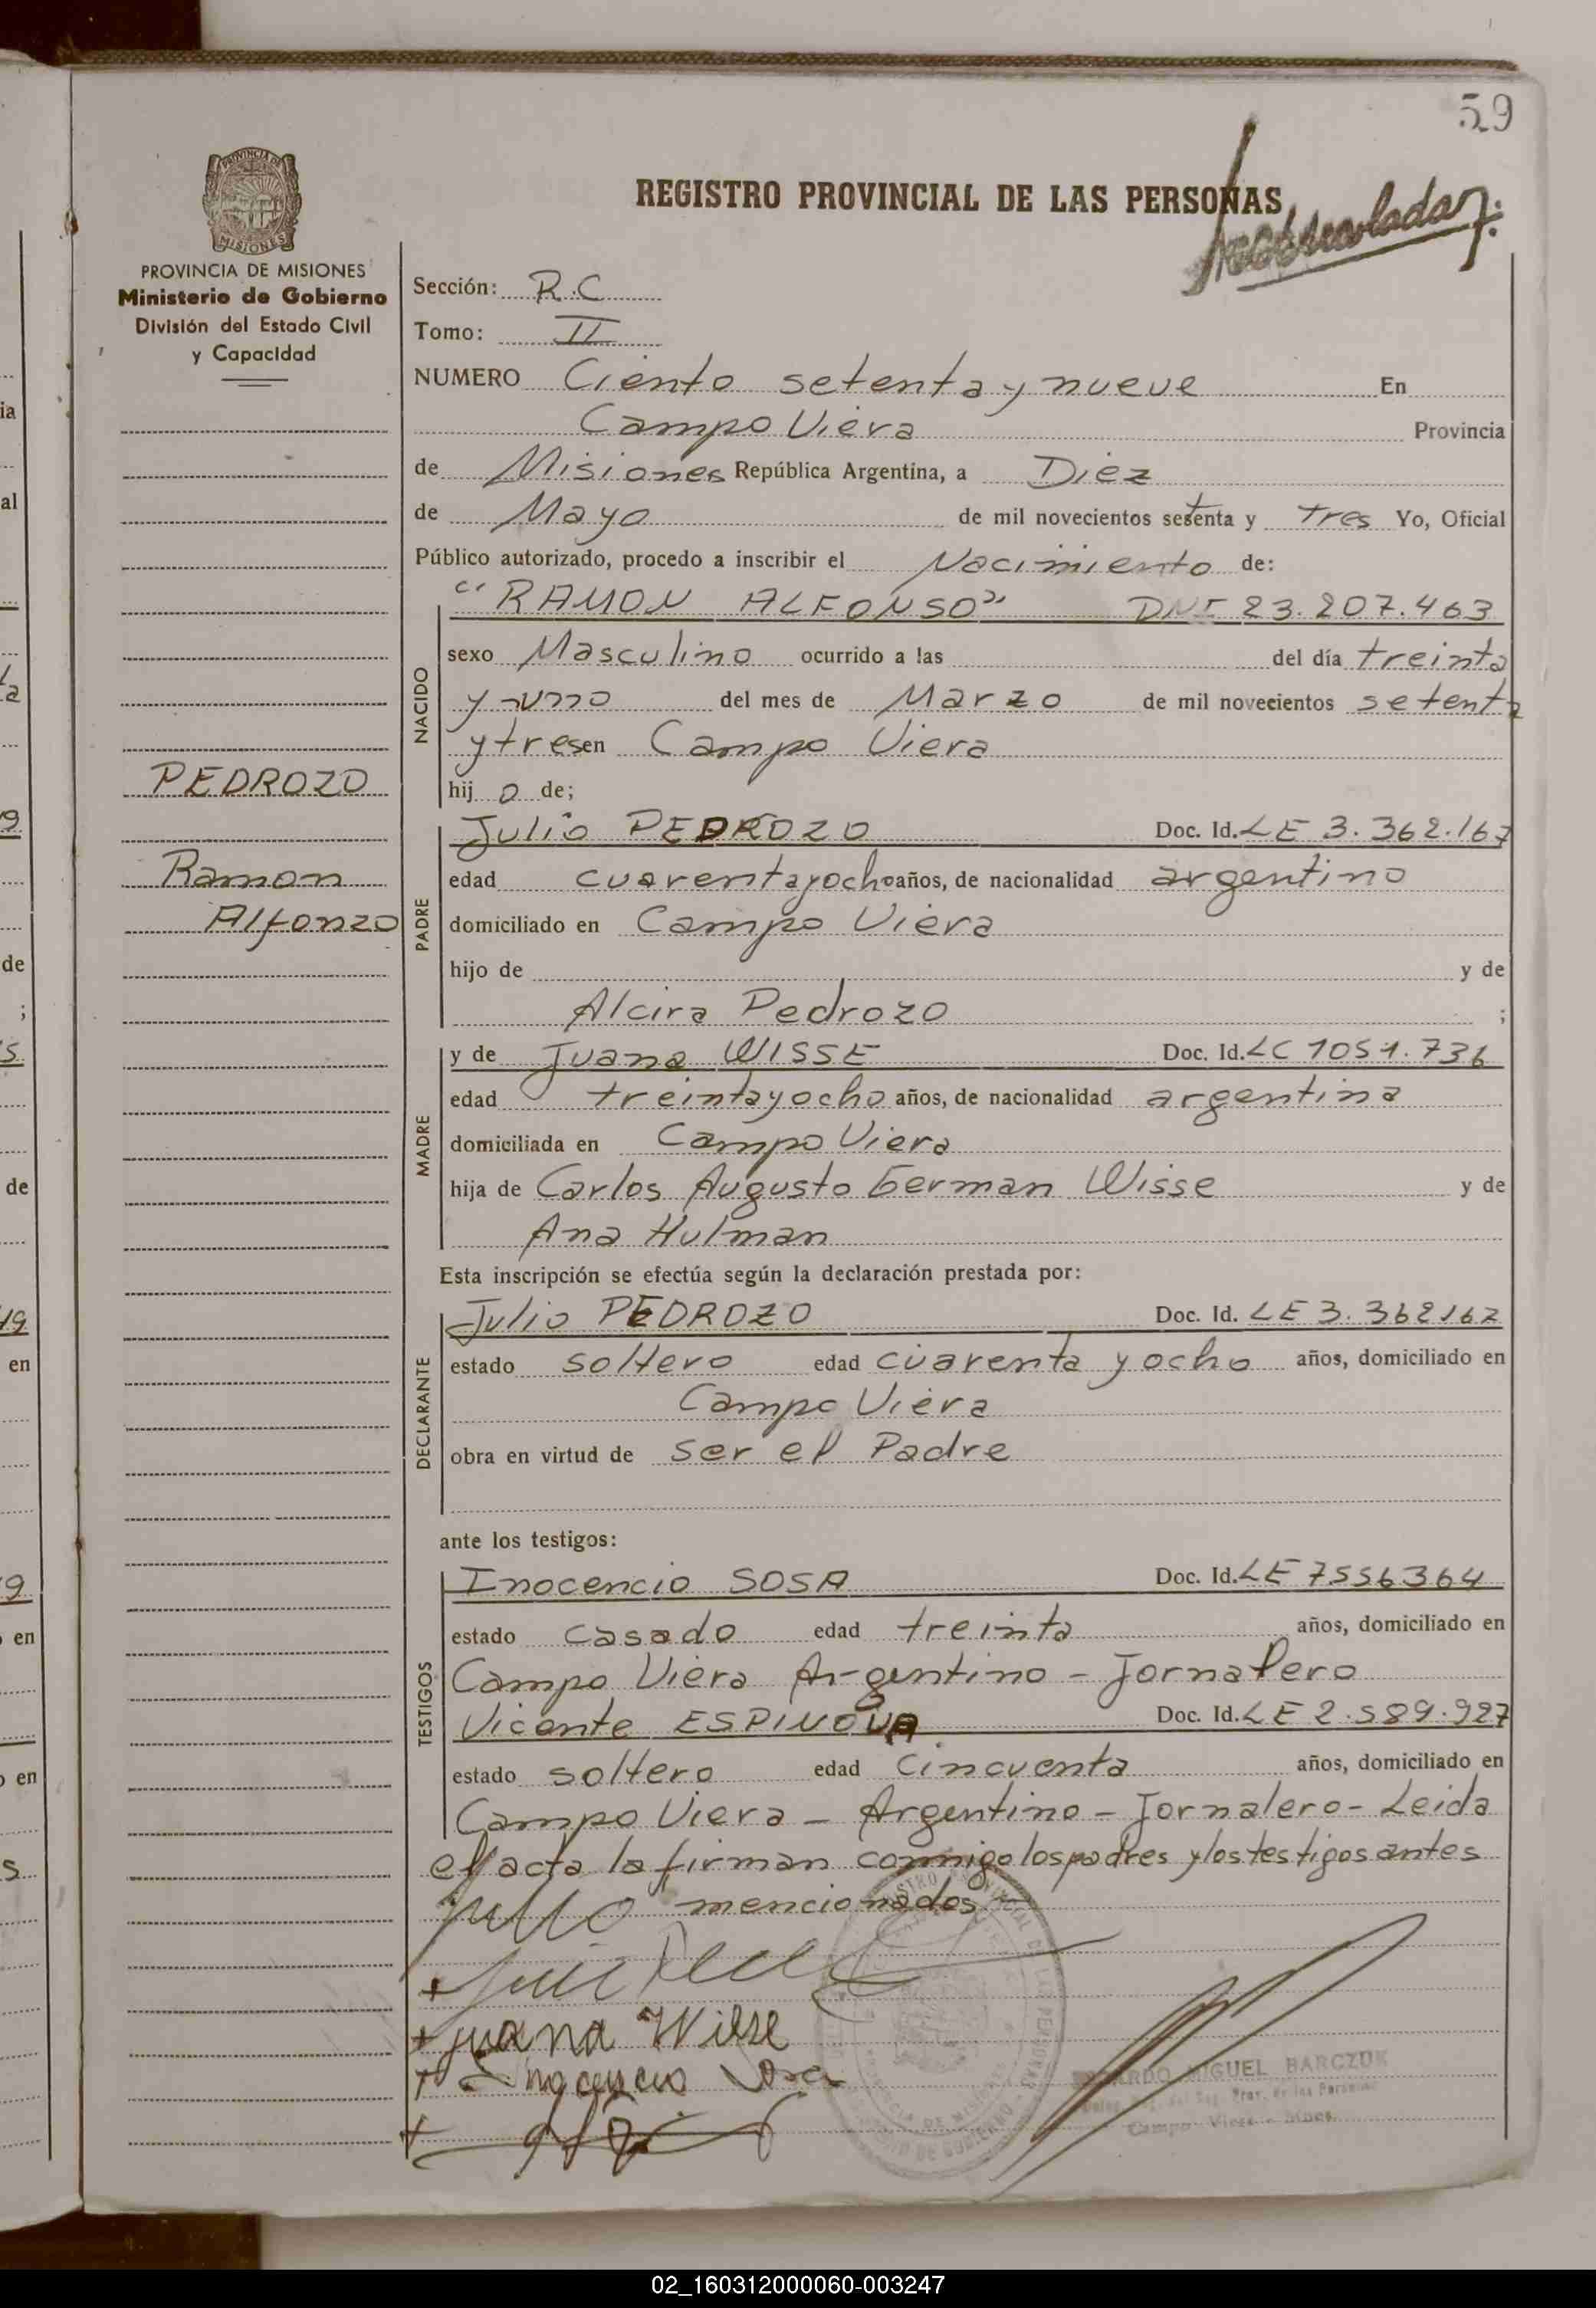 59
REGISTRO PROVINCIAL DE LAS PERSONAS
PROVINCIA DE
MISIONES
PROVINCIA DE MISIONES
Ministerio de Gobierno
División del Estado Civil
y Capacidad
Sección: R.C
Tomo: II
NUMERO Ciento setenta y nueve En
Campo Viera Provincia
de Misiones República Argentina, a Diez
de Mayo de mil novecientos setenta y tres Yo, Oficial
Público autorizado, procedo a inscribir el Nacimiento de:
"RAMON ALFONSO" DNI 23.207.463
NACIDO
sexo Masculino ocurrido a las del día treinta
y uno del mes de Marzo de mil novecientos setenta
y tres en Campo Viera
PEDROZO
hij o de;
Julio PEDROZO Doc. Id. LE 3.362.167
Ramon
Alfonzo
PADRE
edad cuarenta y ocho años, de nacionalidad argentino
domiciliado en Campo Viera
hijo de y de
Alcira Pedrozo ;
MADRE
y de Juana WISSE Doc. Id. LC 1051.736
edad treinta y ocho años, de nacionalidad argentina
domiciliada en Campo Viera
hija de Carlos Augusto German Wisse y de
Ana Hulman
Esta inscripción se efectúa según la declaración prestada por:
DECLARANTE
Julio PEDROZO Doc. Id. LE 3.362167
estado soltero edad cuarenta y ocho años, domiciliado en
Campo Viera
obra en virtud de ser el Padre
ante los testigos:
TESTIGOS
Inocencio SOSA Doc. Id. LE 7556364
estado casado edad treinta años, domiciliado en
Campo Viera Argentino - Jornalero
Vicente ESPINOVA Doc. Id. LE 2.589.927
estado soltero edad cincuenta años, domiciliado en
Campo Viera - Argentino - Jornalero - Leida
el acta la firman conmigo los padres y los testigos antes
mencionados
Juana Wisse
Inocencio Sosa
MIGUEL BARCZUK
02_160312000060-003247